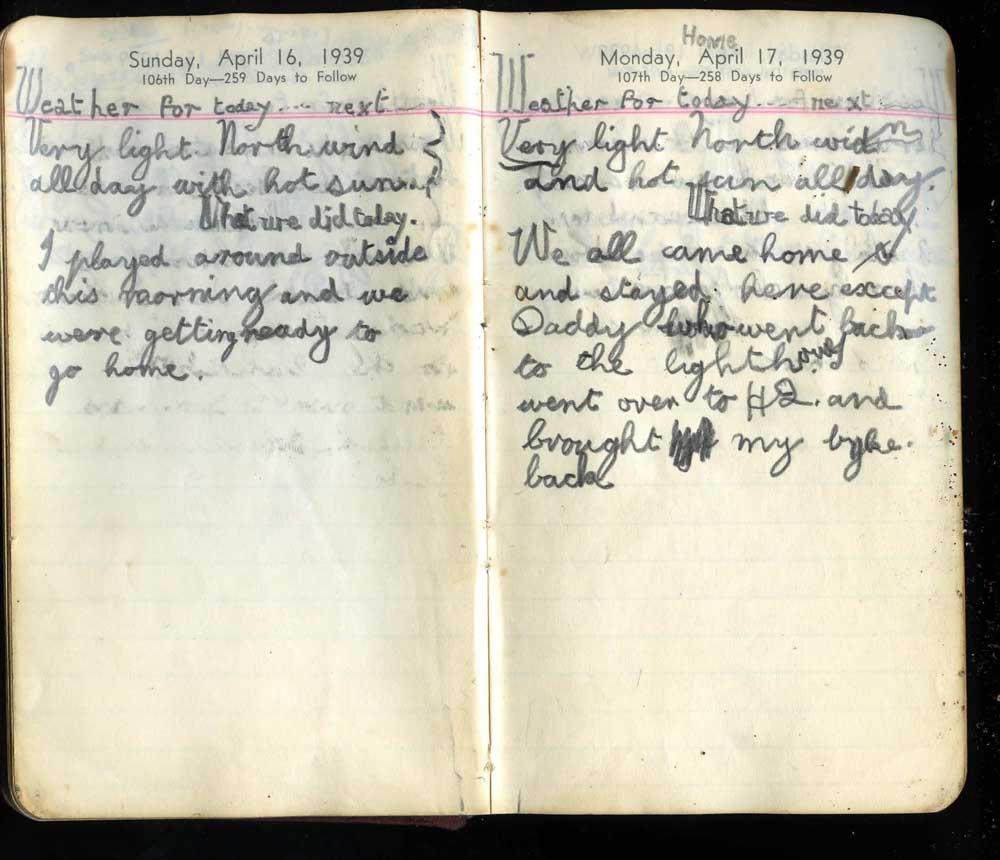 Sunday, April 16, 1939
106th Day—259 Days to Follow
Weather for today.... next
Very light North wind
all day with hot sun
What we did today.
I played around outside
this morning and we
were getting ready to
go home.
Home
Monday, April 17, 1939
107th Day—258 Days to Follow
Weather for today.... next
Very light North wid
and hot sun all day.
What we did today
We all came home
and stayed here except
Daddy who went back
to the light
went over to H2. and
brought my byke.
back